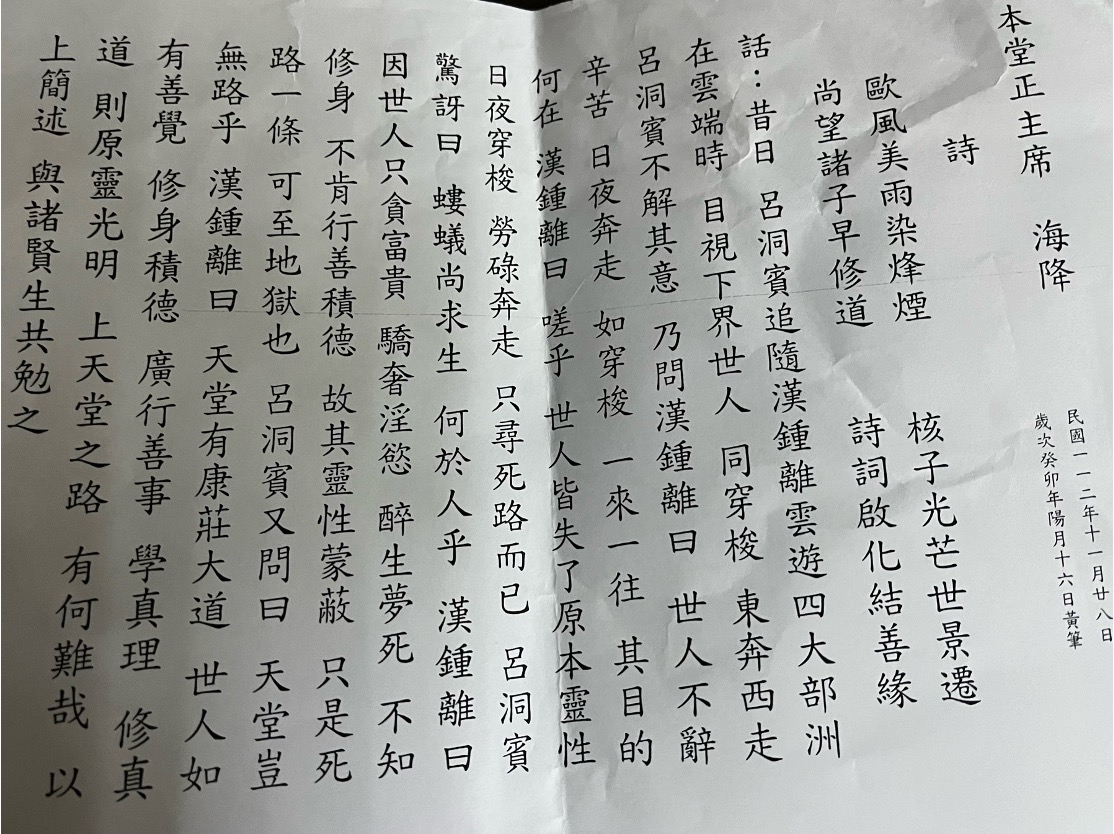 本堂正主席 海降
民國一一二年十一月廿八日
歲次癸卯年陽月十六日黃筆
詩
歐風美雨染烽煙 核子光芒世景遷
尚望諸子早修道 詩詞啟化結善緣
話:昔日 呂洞賓追隨漢鍾離雲遊四大部洲
在雲端時 目視下界世人 同穿梭 東奔西走
呂洞賓不解其意 乃問漢鍾離曰 世人不辭
辛苦 日夜奔走 如穿梭 一來一往 其目的
何在 漢鍾離曰 嗟乎 世人皆失了原本靈性
日夜穿梭 勞碌奔走 只尋死路而已 呂洞賓
驚訝曰 螻蟻尚求生 何於人乎 漢鍾離曰
因世人只貪富貴 驕奢淫慾 醉生夢死 不知
修身 不肯行善積德 故其靈性蒙蔽 只是死
路一條 可至地獄也 呂洞賓又問曰 天堂豈
無路乎 漢鍾離曰 天堂有康莊大道 世人如
有善覺 修身積德 廣行善事 學真理 修真
道 則原靈光明 上天堂之路 有何難哉 以
上簡述 與諸賢生共勉之